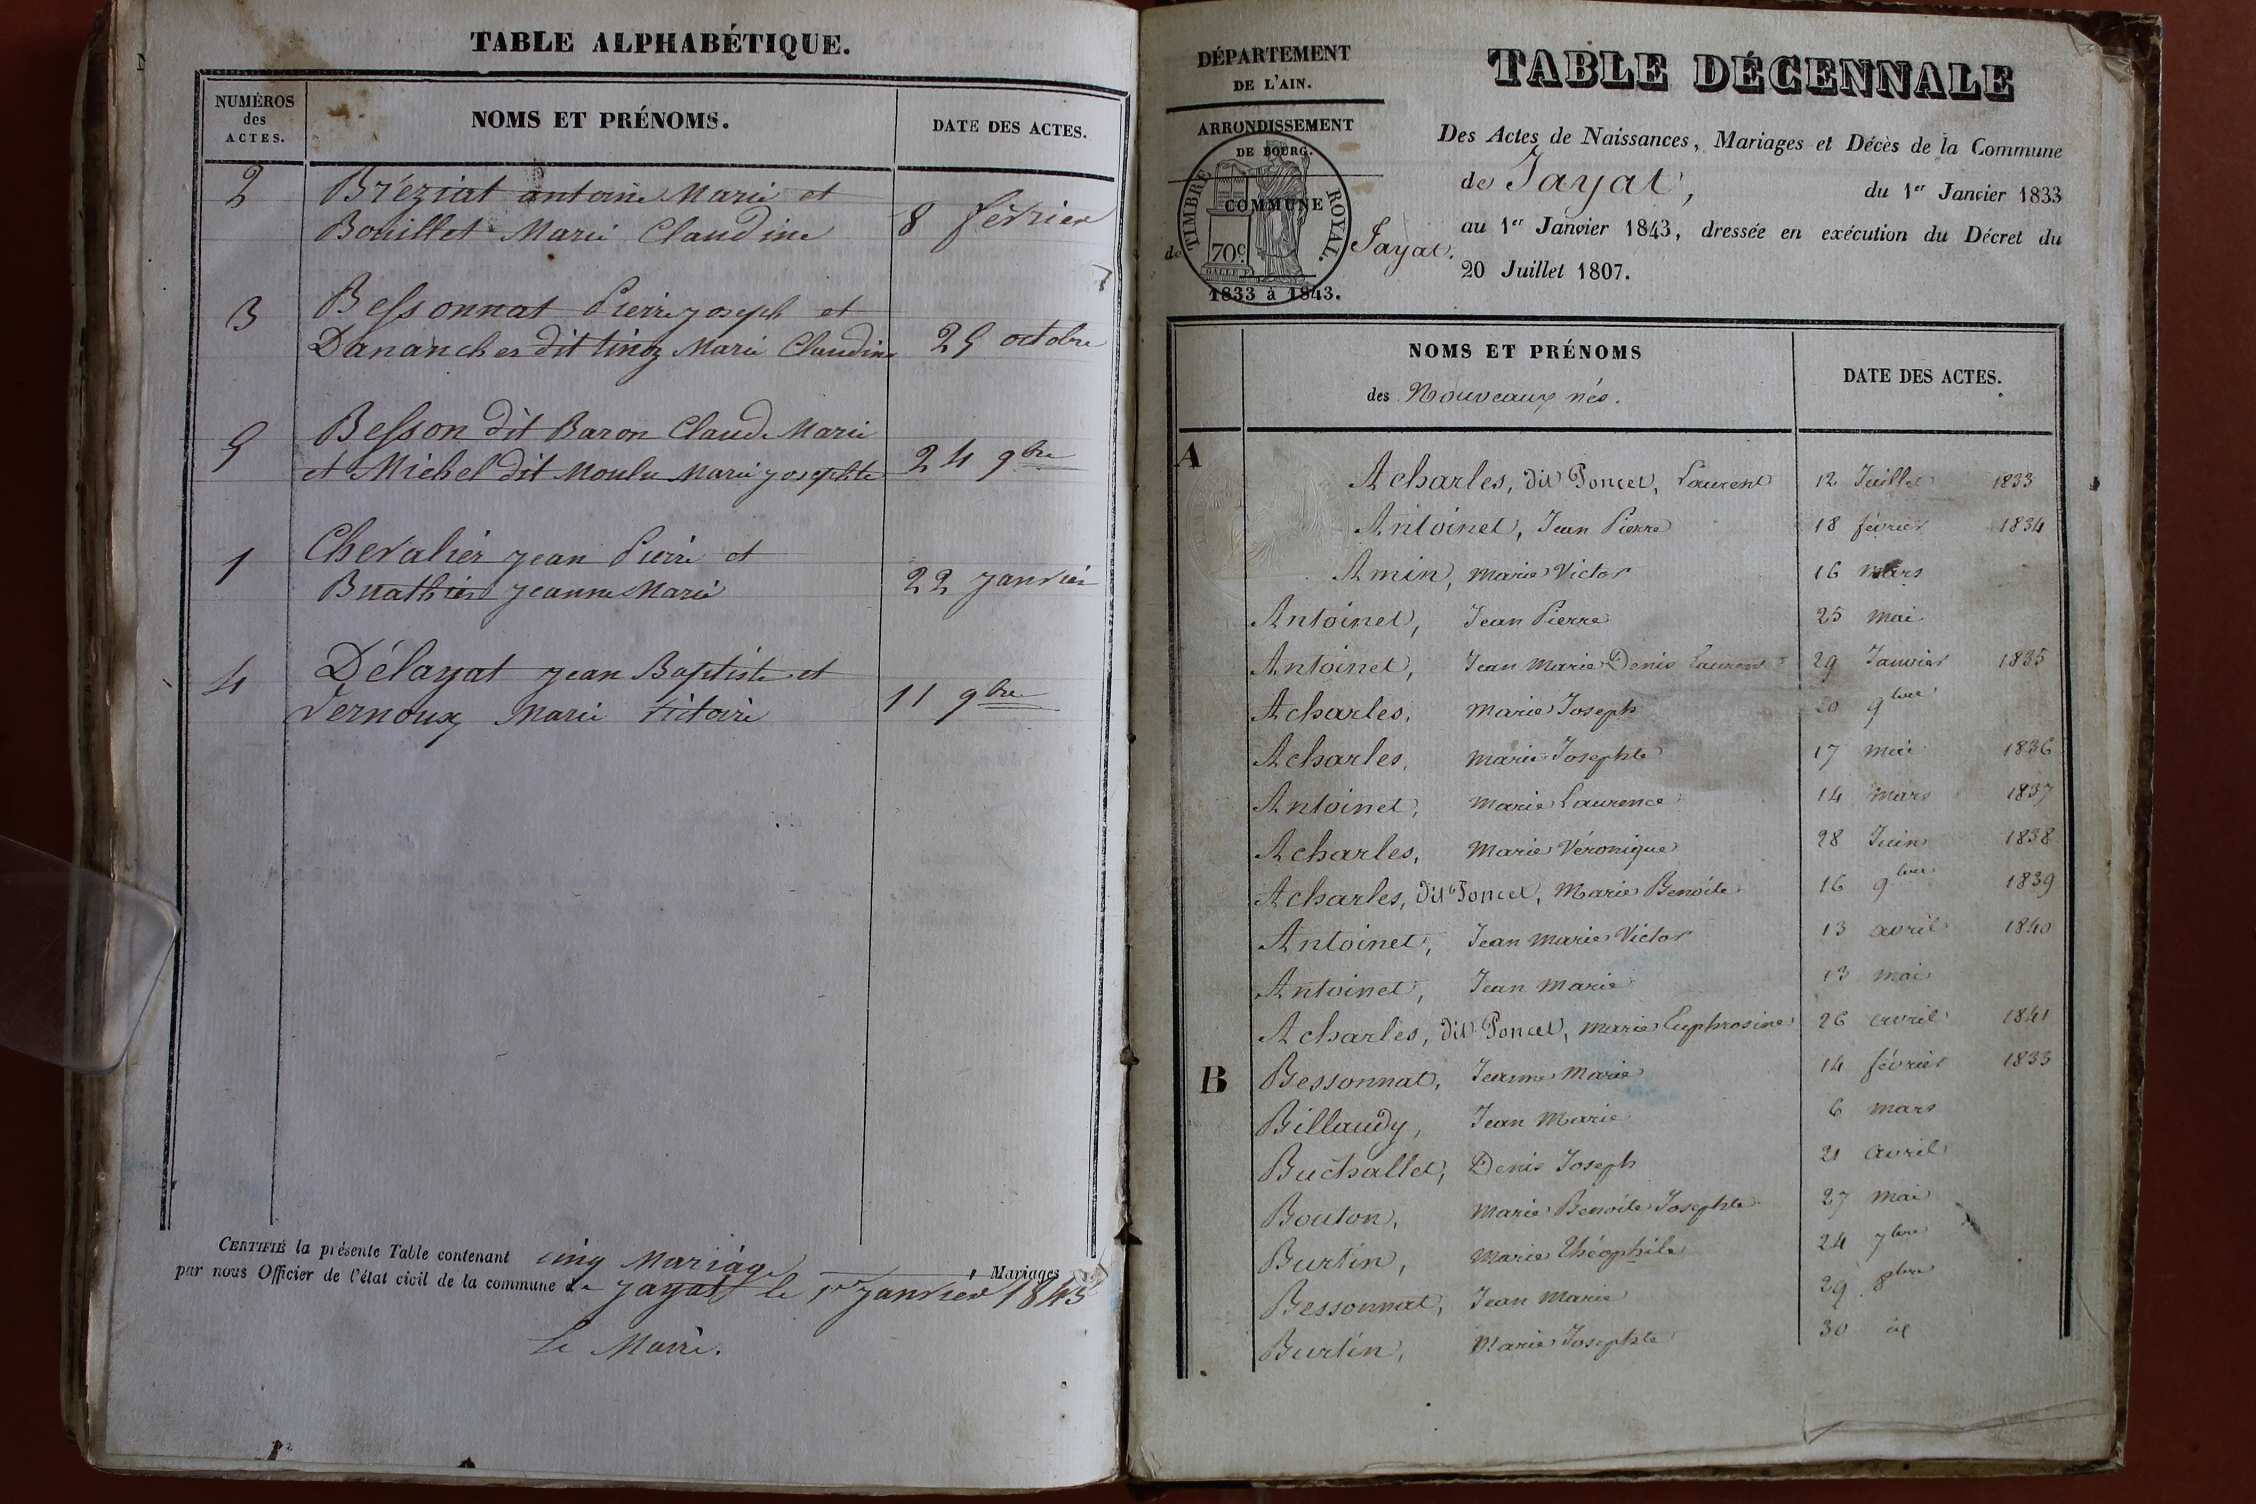 TABLE ALPHABÉTIQUE.
NUMÉROS
des
ACTES.
NOMS ET PRÉNOMS.
DATE DES ACTES.
2
Bréziat antoine Marie et
Bouillet Marie Claudine
8 février
3
Bessonnat Pierre joseph et
Dananches dit tinoz Marie Claudine
25 octobre
5
Besson dit Baron Claude Marie
et Michel dit Moulu Marie josephte
24 9bre
1
Chevalier jean Pierre et
Buathier jeanne Marie
22 janvier
4
Délayat jean Baptiste et
Vernoux Marie victoire
11 9bre
CERTIFIÉ la présente Table contenant cinq Mariage, Mariages
par nous Officier de l'état civil de la commune de jayat le 1er janvier 1843
Le Maire.
DÉPARTEMENT
DE L'AIN.
ARRONDISSEMENT
DE BOURG.
COMMUNE
de Jayat.
TIMBRE ROYAL.
70c.
1833 à 1843.
TABLE DÉCENNALE
Des Actes de Naissances, Mariages et Décès de la Commune
de Jayat, du 1er Janvier 1833
au 1er Janvier 1843, dressée en exécution du Décret du
20 Juillet 1807.
NOMS ET PRÉNOMS
des Nouveaux nés.
DATE DES ACTES.
A
Acharles, dit Poncet, Laurent 12 Juillet 1833
Antoinet, Jean Pierre 18 février 1834
Amin, Marie Victor 16 mars
Antoinet, Jean Pierre 25 mai
Antoinet, Jean Marie Denis Laurent 29 Janvier 1835
Acharles, Marie Joseph 20 9bre
Acharles, Marie Josephte 17 mai 1836
Antoinet, Marie Laurence 14 Mars 1837
Acharles, Marie Véronique 28 Juin 1838
Acharles, dit Poncet, Marie Benoite 16 9bre 1839
Antoinet, Jean Marie Victor 13 avril 1840
Antoinet, Jean Marie 13 mai
Acharles, dit Poncet, Marie Euphrosine 26 avril 1841
B
Bessonnat, Jeanne Marie 14 février 1833
Billaudy, Jean Marie 6 mars
Buchallet, Denis Joseph 21 avril
Bouton, Marie Benoite Josephte 27 mai
Burtin, Marie Théophile 24 7bre
Bessonnat, Jean Marie 29 8bre
Burtin, Marie Josephte 30